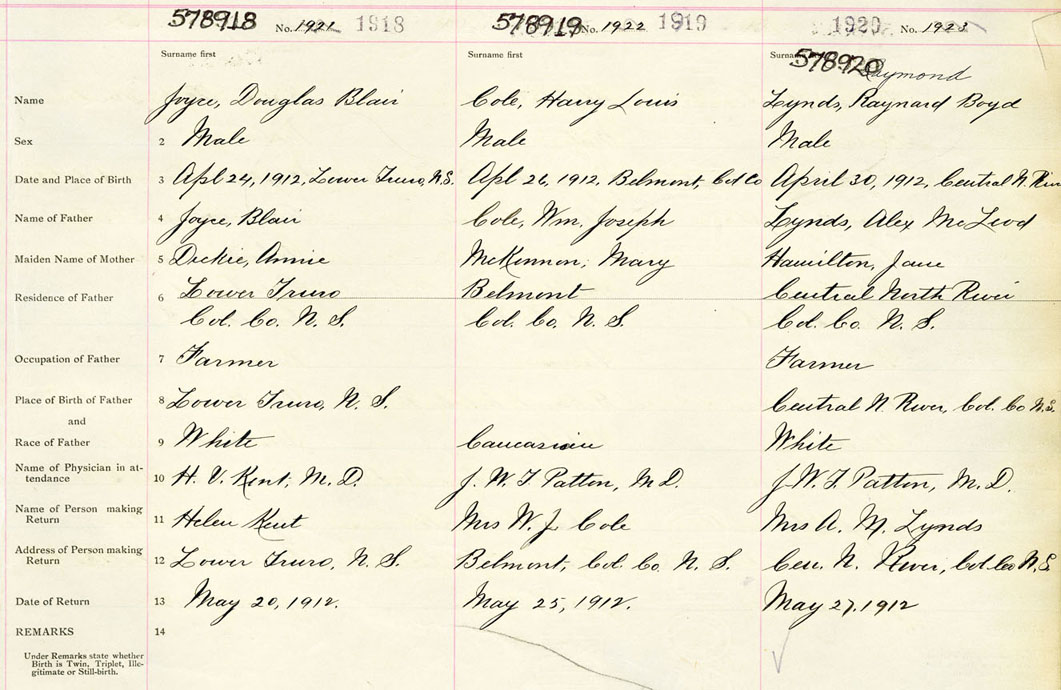 578918 No. 1921 1918 578919 No. 1922 1919 1920 No. 1923
Surname first Surname first Surname first 578920
Raymond
Name Joyce, Douglas Blair Cole, Harry Louis Lynds, Raynard Boyd
Sex 2 Male Male Male
Date and Place of Birth 3 Apl 24, 1912, Lower Truro, N.S. Apl 26, 1912, Belmont, Col Co April 30, 1912, Central N. Riv
Name of Father 4 Joyce, Blair Cole, Wm. Joseph Lynds, Alex McLeod
Maiden Name of Mother 5 Dickie, Annie McKinnon, Mary Hamilton, Jane
Residence of Father 6 Lower Truro Belmont Central North River
Col. Co. N. S. Col. Co. N. S. Col. Co. N. S.
Occupation of Father 7 Farmer Farmer
Place of Birth of Father 8 Lower Truro, N. S. Central N. River, Col. Co N.S.
and
Race of Father 9 White Caucasian White
Name of Physician in at-
tendance 10 H. V. Kent, M. D. J. W. T Patton, M D. J. W. T. Patton, M. D.
Name of Person making
Return 11 Helen Kent Mrs W. J. Cole Mrs A. M. Lynds
Address of Person making
Return 12 Lower Truro, N. S. Belmont, Col. Co. N. S. Cen. N. River, Col. Co N.S.
Date of Return 13 May 20, 1912. May 25, 1912. May 27, 1912
REMARKS 14
Under Remarks state whether
Birth is Twin, Triplet, Ille-
gitimate or Still-birth.